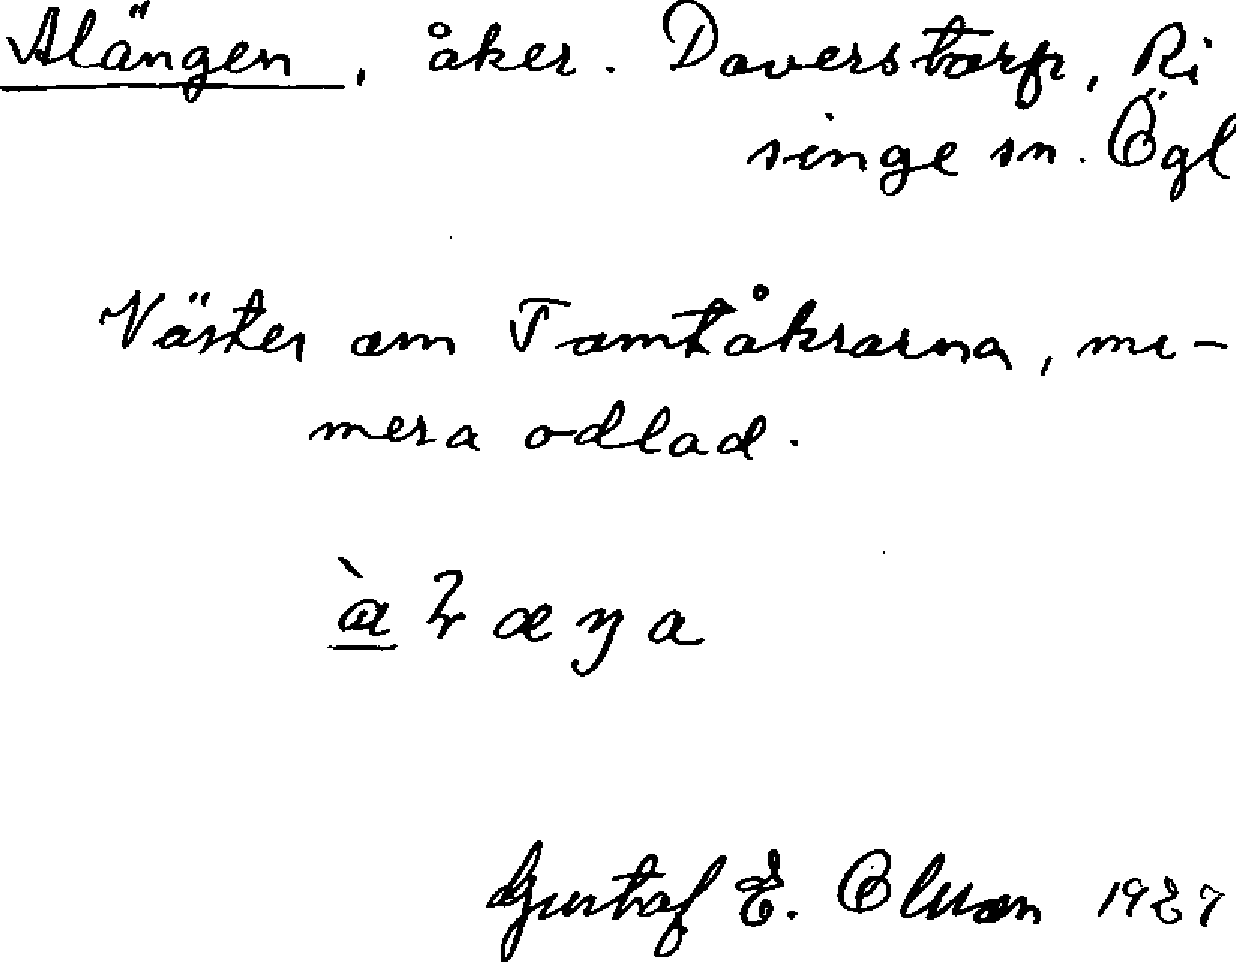 Alängen, åker. Daverstorp, Ri
singe sn. Ögl
Väster om Tomtåkrarna, nu-
mera odlad.
Gustaf E. Olsson 1927